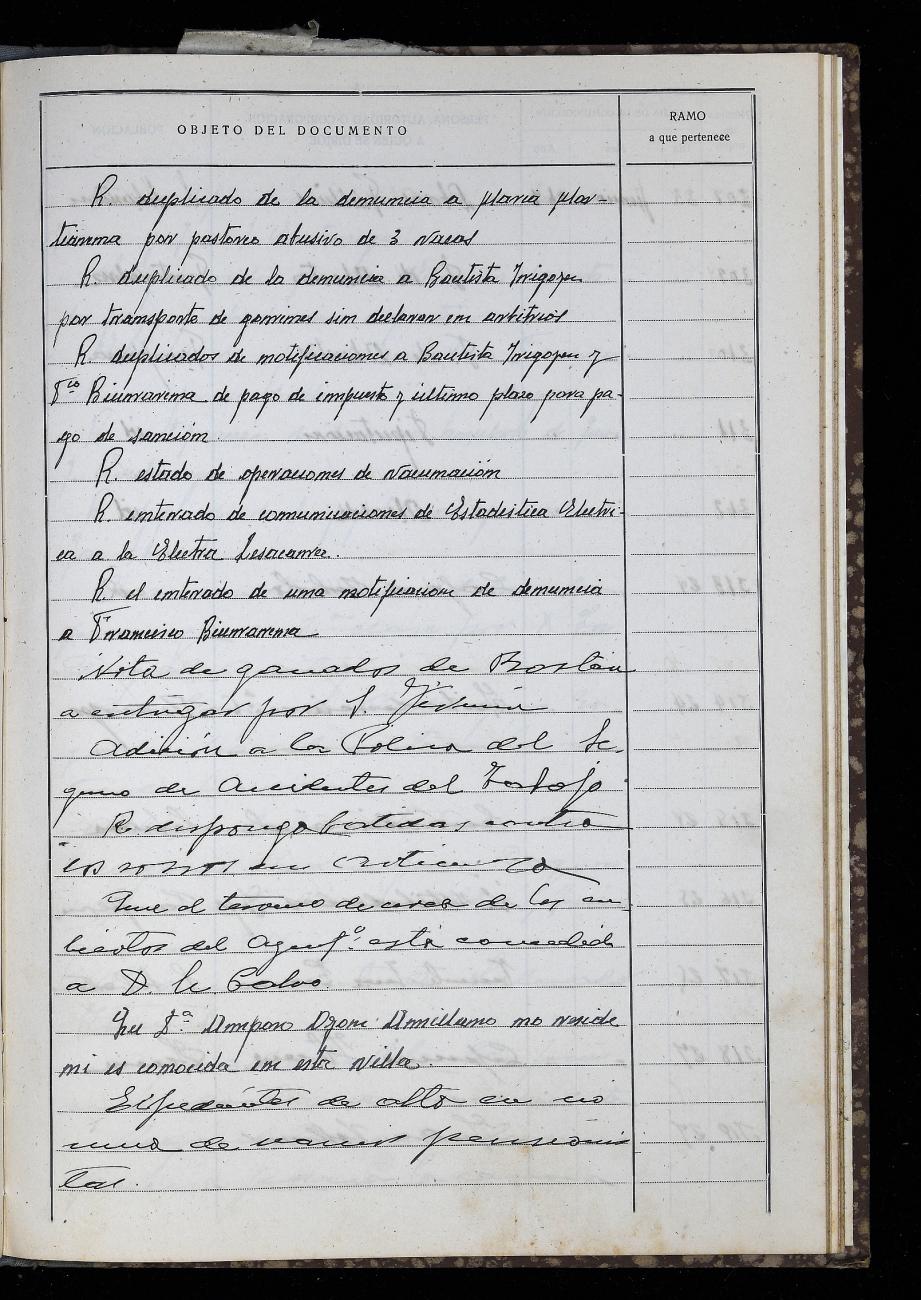 OBJETO DEL DOCUMENTO
RAMO
a que pertenece
R. duplicado de la denuncia a Maria Mar-
tiarena por pastoreo abusivo de 3 vacas
R. duplicado de la denuncia a Bautista Irigoyen
por transporte de gorrines sin declarar en arbitrios
R. duplicados de notificaciones a Bautista Irigoyen y
Fco Biurrarena de pago de impuesto y último plazo para pa-
go de sanción.
R. estado de operaciones de vacunación
R. enterado de comunicaciones de Estadistica Electri-
ca a la Electra Lesacarra.
R. el enterado de una notificacion de denuncia
a Francisco Biurrarena
Nota de ganados de
a entregar por
Adición a la Poliza del Se-
guro de Accidentes del Trabajo
R. disponga batidas contra
los zorros en
Que el terreno de cerca de los cu-
biertos del está concedido
a D.
Que Dª Amparo no reside
ni es conocida en esta villa.
Expedientes de alta en nó
mina de varios pensionis
tas.